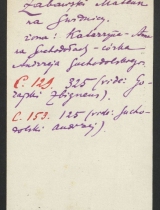 Żabowski Mattan
na Gurdnicy.
żona: Katarzyna - Anna
na Suchodołach - córka
Andrzeja Suchodolskiego.
C. 129. 325 (vide: Go-
Zbigniew).
C. 153. 125 (vide: Sucho-
dolski Andrzej).